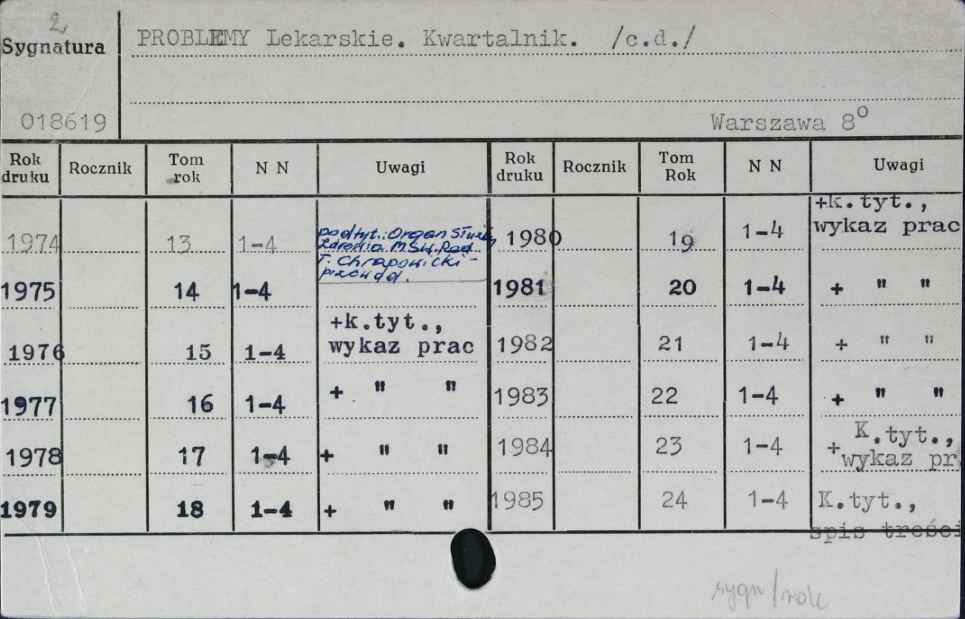 2
Sygnatura
PROBLEMY Lekarskie. Kwartalnik. /c.d./
018619
Warszawa 8⁰
Rok druku Rocznik Tom rok N N Uwagi Rok druku Rocznik Tom Rok N N Uwagi
1974 13 1-4 podtyt.: Organ Służby
Zdrowia MSW. Red
T. Chrapowicki -
przewod.
1975 14 1-4
1976 15 1-4 +k.tyt.,
wykaz prac
1977 16 1-4 + " "
1978 17 1-4 + " "
1979 18 1-4 + " "
1980 19 1-4 +k.tyt.,
wykaz prac
1981 20 1-4 + " "
1982 21 1-4 + " "
1983 22 1-4 + " "
1984 23 1-4 + K.tyt.,
wykaz pr.
1985 24 1-4 K.tyt.,
spis treści
sygn/rok